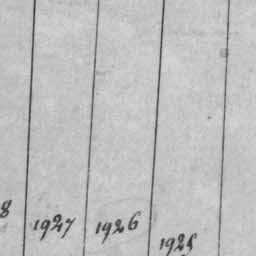 8 1927 1926
1925